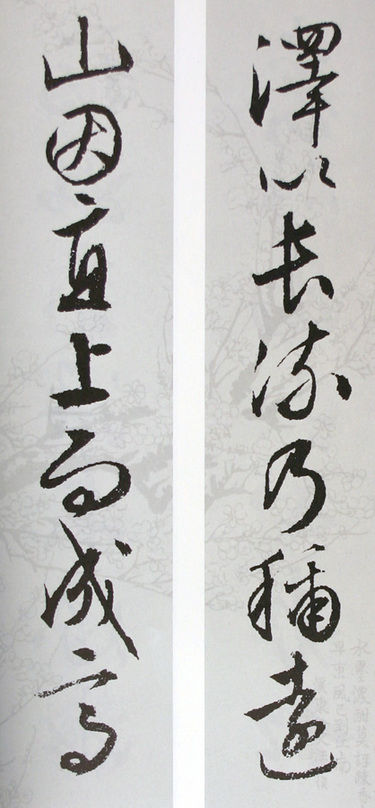 澤以長流乃稱遠
山因直上而成高